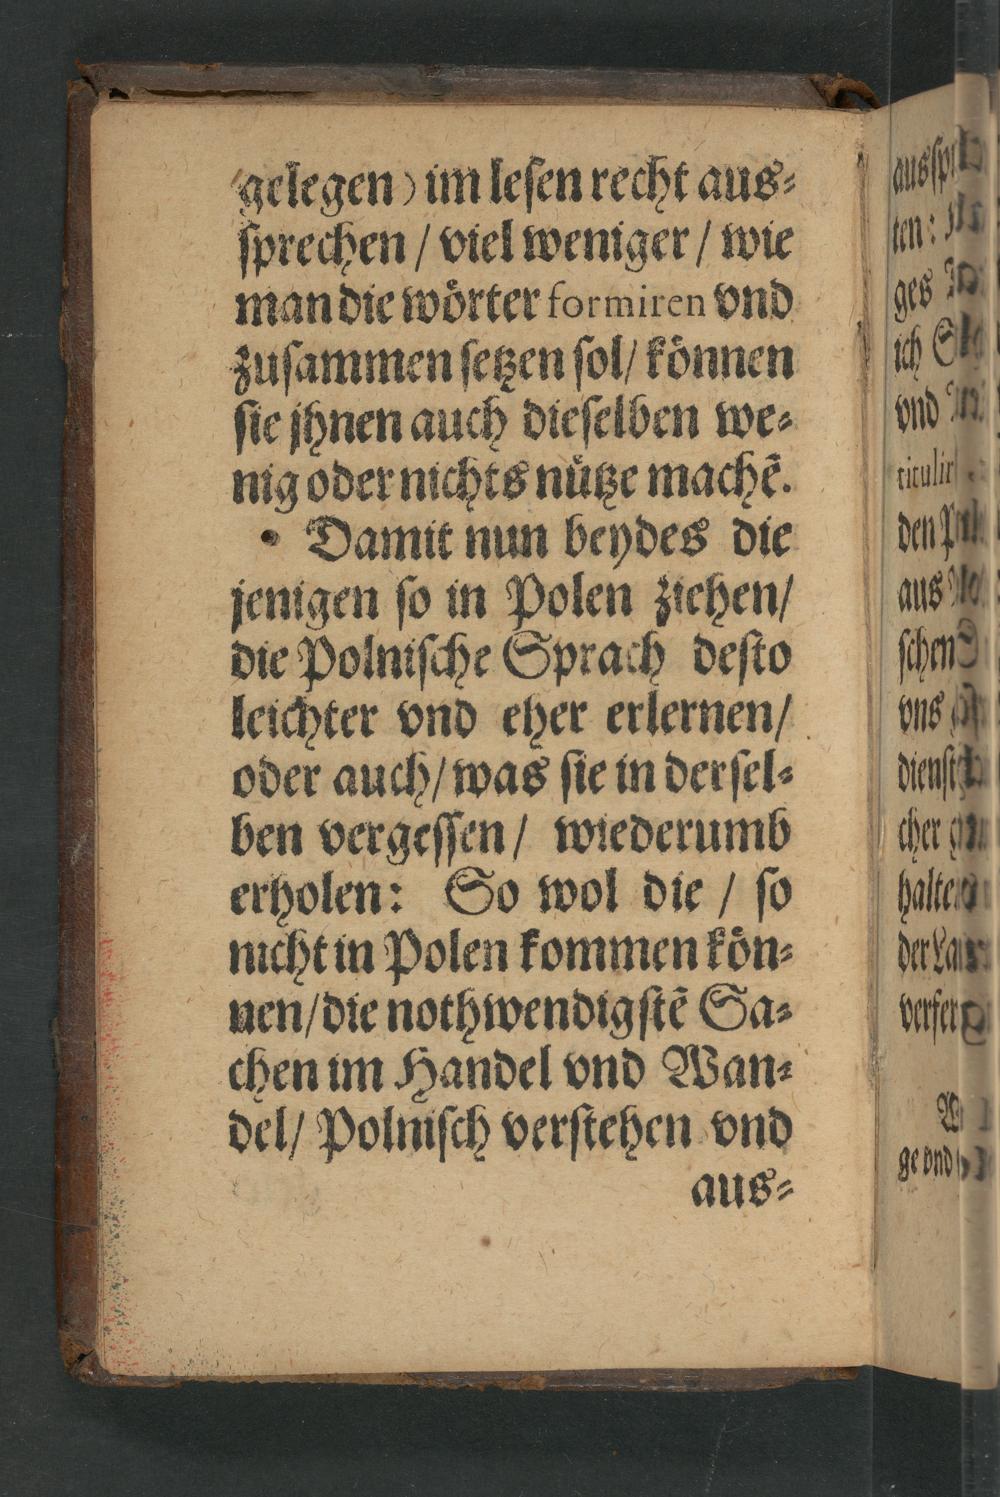 gelegen) im lesen recht aus⸗
sprechen / viel weniger / wie
man die wörter formiren vnd
zusammen setzen sol/ können
sie jhnen auch dieselben we⸗
nig oder nichts nütze machẽ.
Damit nun beydes die
jenigen so in Polen ziehen/
die Polnische Sprach desto
leichter vnd eher erlernen/
oder auch/ was sie in dersel⸗
ben vergessen/ wiederumb
erholen: So wol die / so
nicht in Polen kommen kön⸗
nen/die nothwendigstẽ Sa⸗
chen im Handel vnd Wan⸗
del/ Polnisch verstehen vnd
aus⸗
ten:
ges
ich
vnd
den
aus
schen
vns
cher